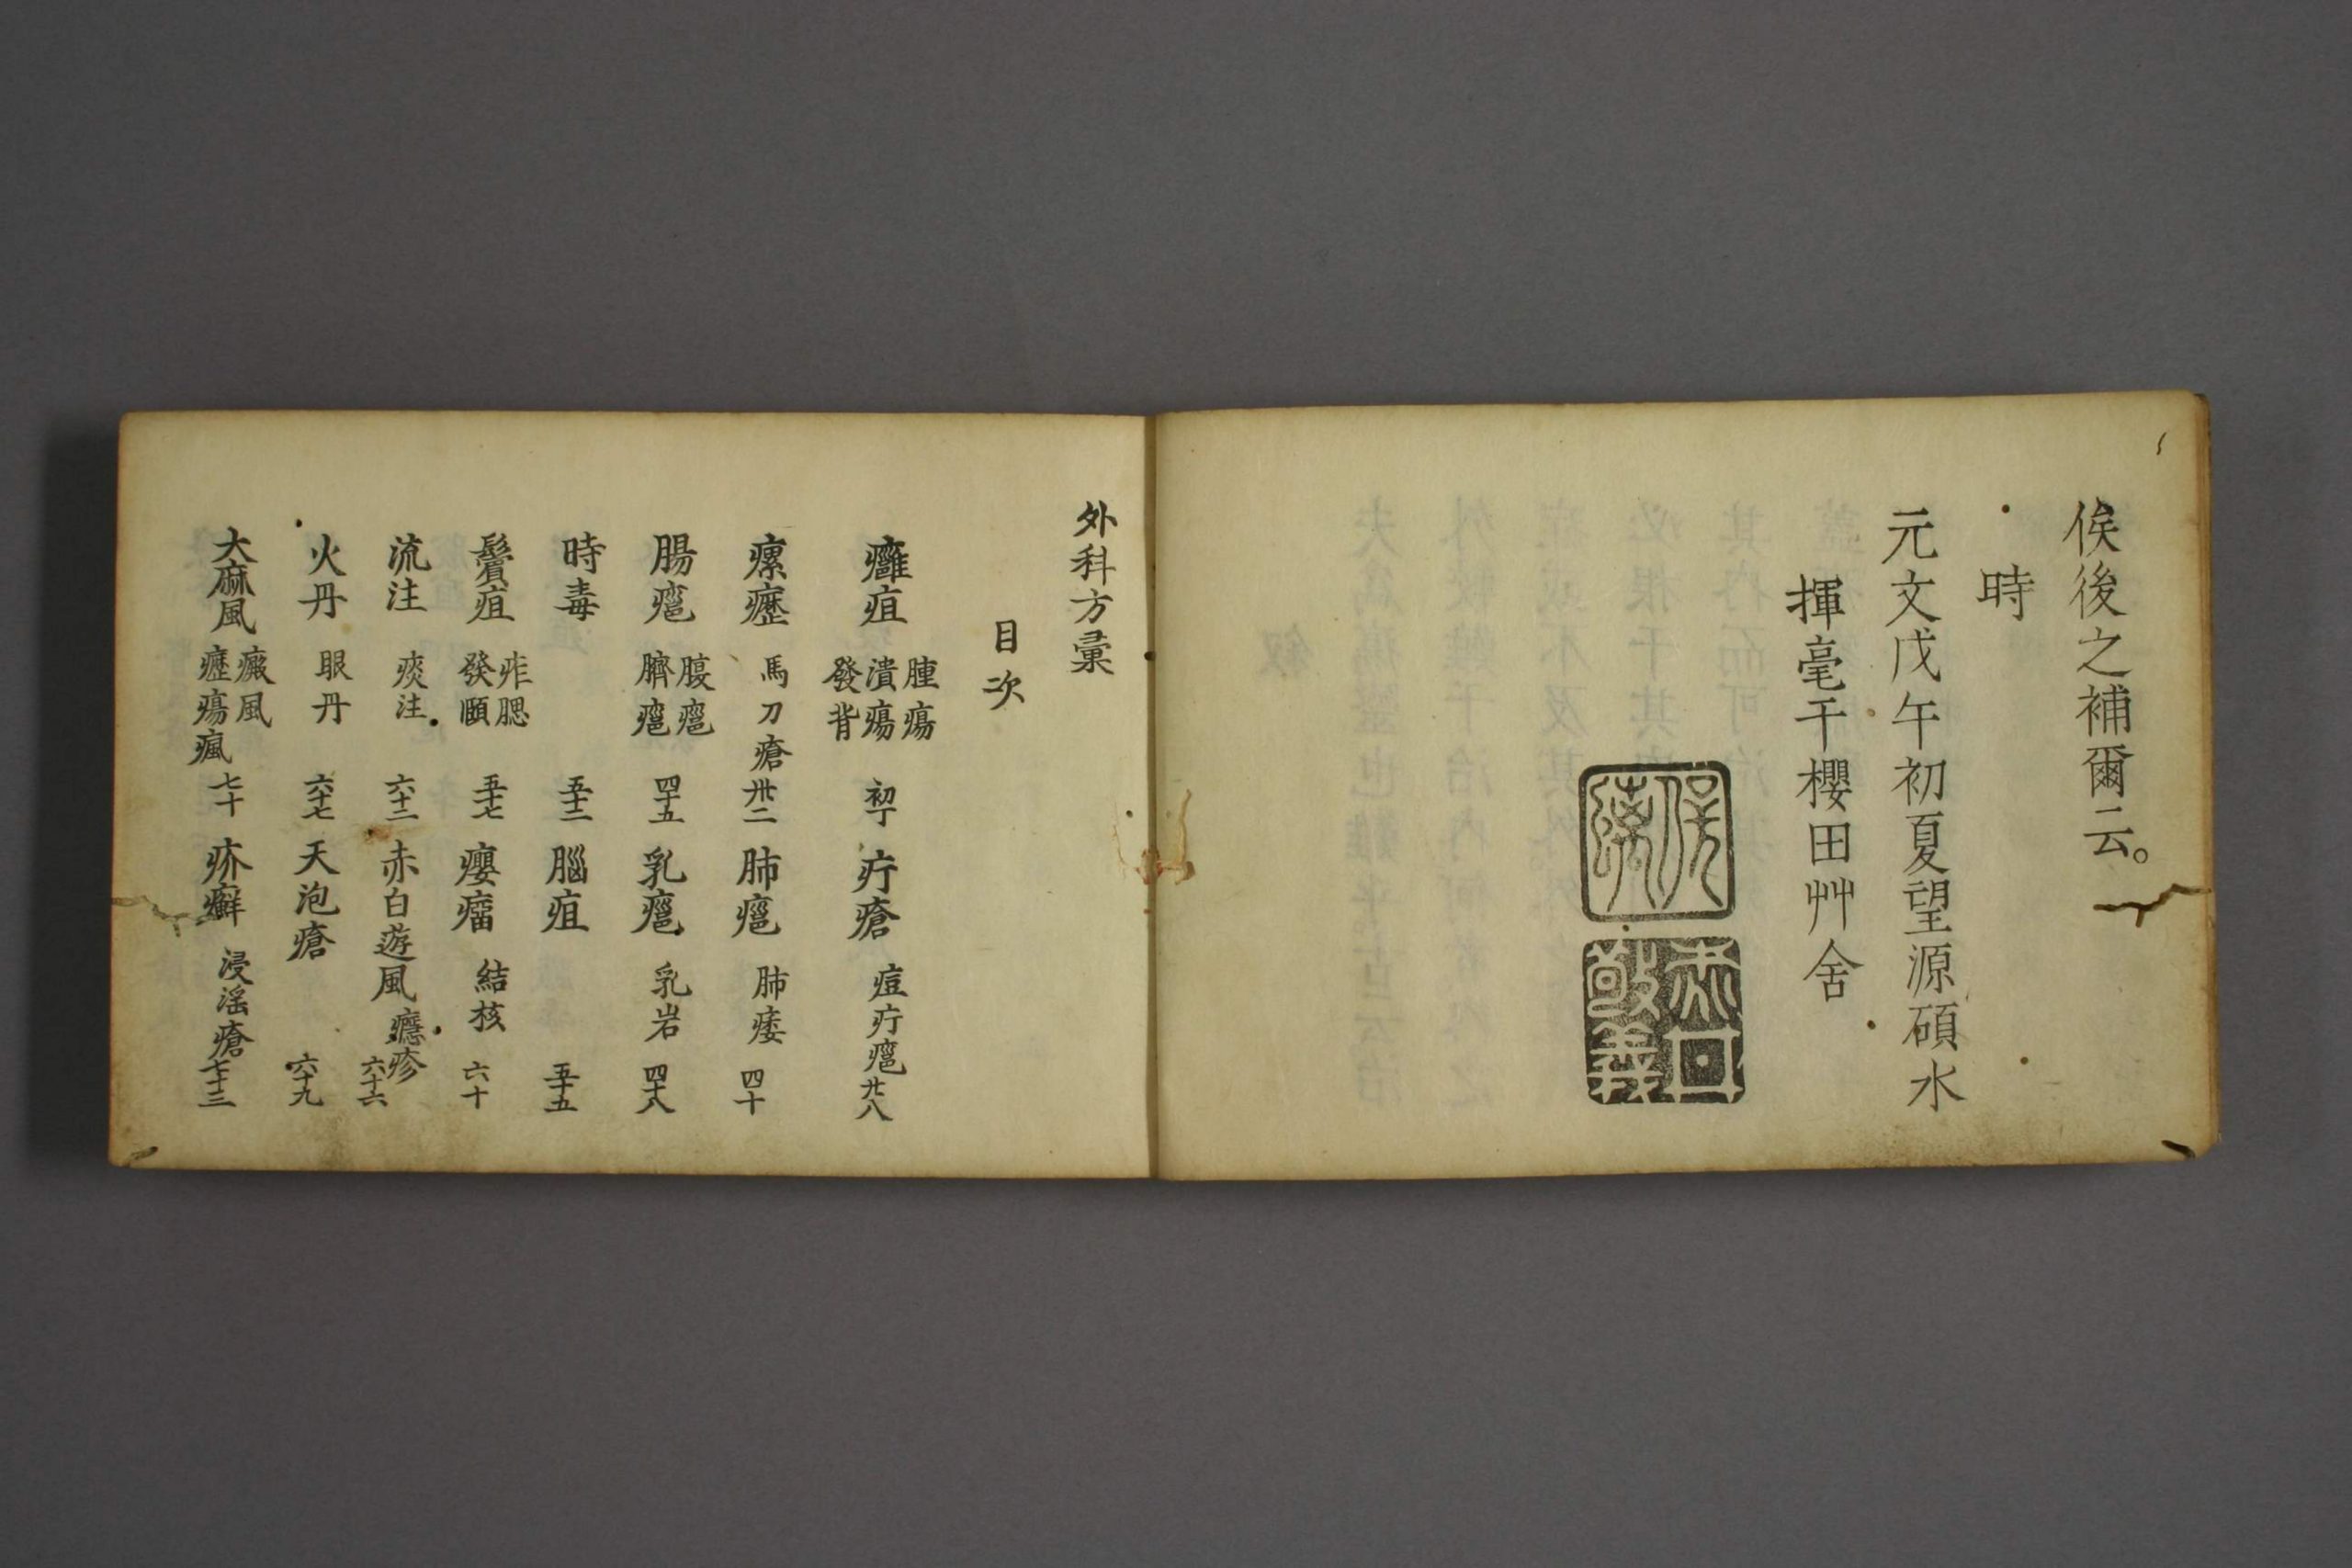 俟後之補爾云。
時
元文戊午初夏望源碩水
揮毫于櫻田艸舍
外科方彙
目次
癰疽 腫瘍 潰瘍 發背 初丁 疔瘡 痘疔癰 廿八
瘰癧 馬刀瘡 卅二 肺癰 肺痿 四十
腸癰 腹癰 臍癰 四十五 乳癰 乳岩 四十八
時毒 五十二 腦疽 五十五
鬢疽 痄腮 發頤 五十七 癭瘤 結核 六十
流注 痰注 六十二 赤白遊風 癮疹 六十六
火丹 眼丹 六十七 天泡瘡 六十九
大麻風 癜風 癧瘍瘋 七十 疥癬 浸淫瘡 七十三